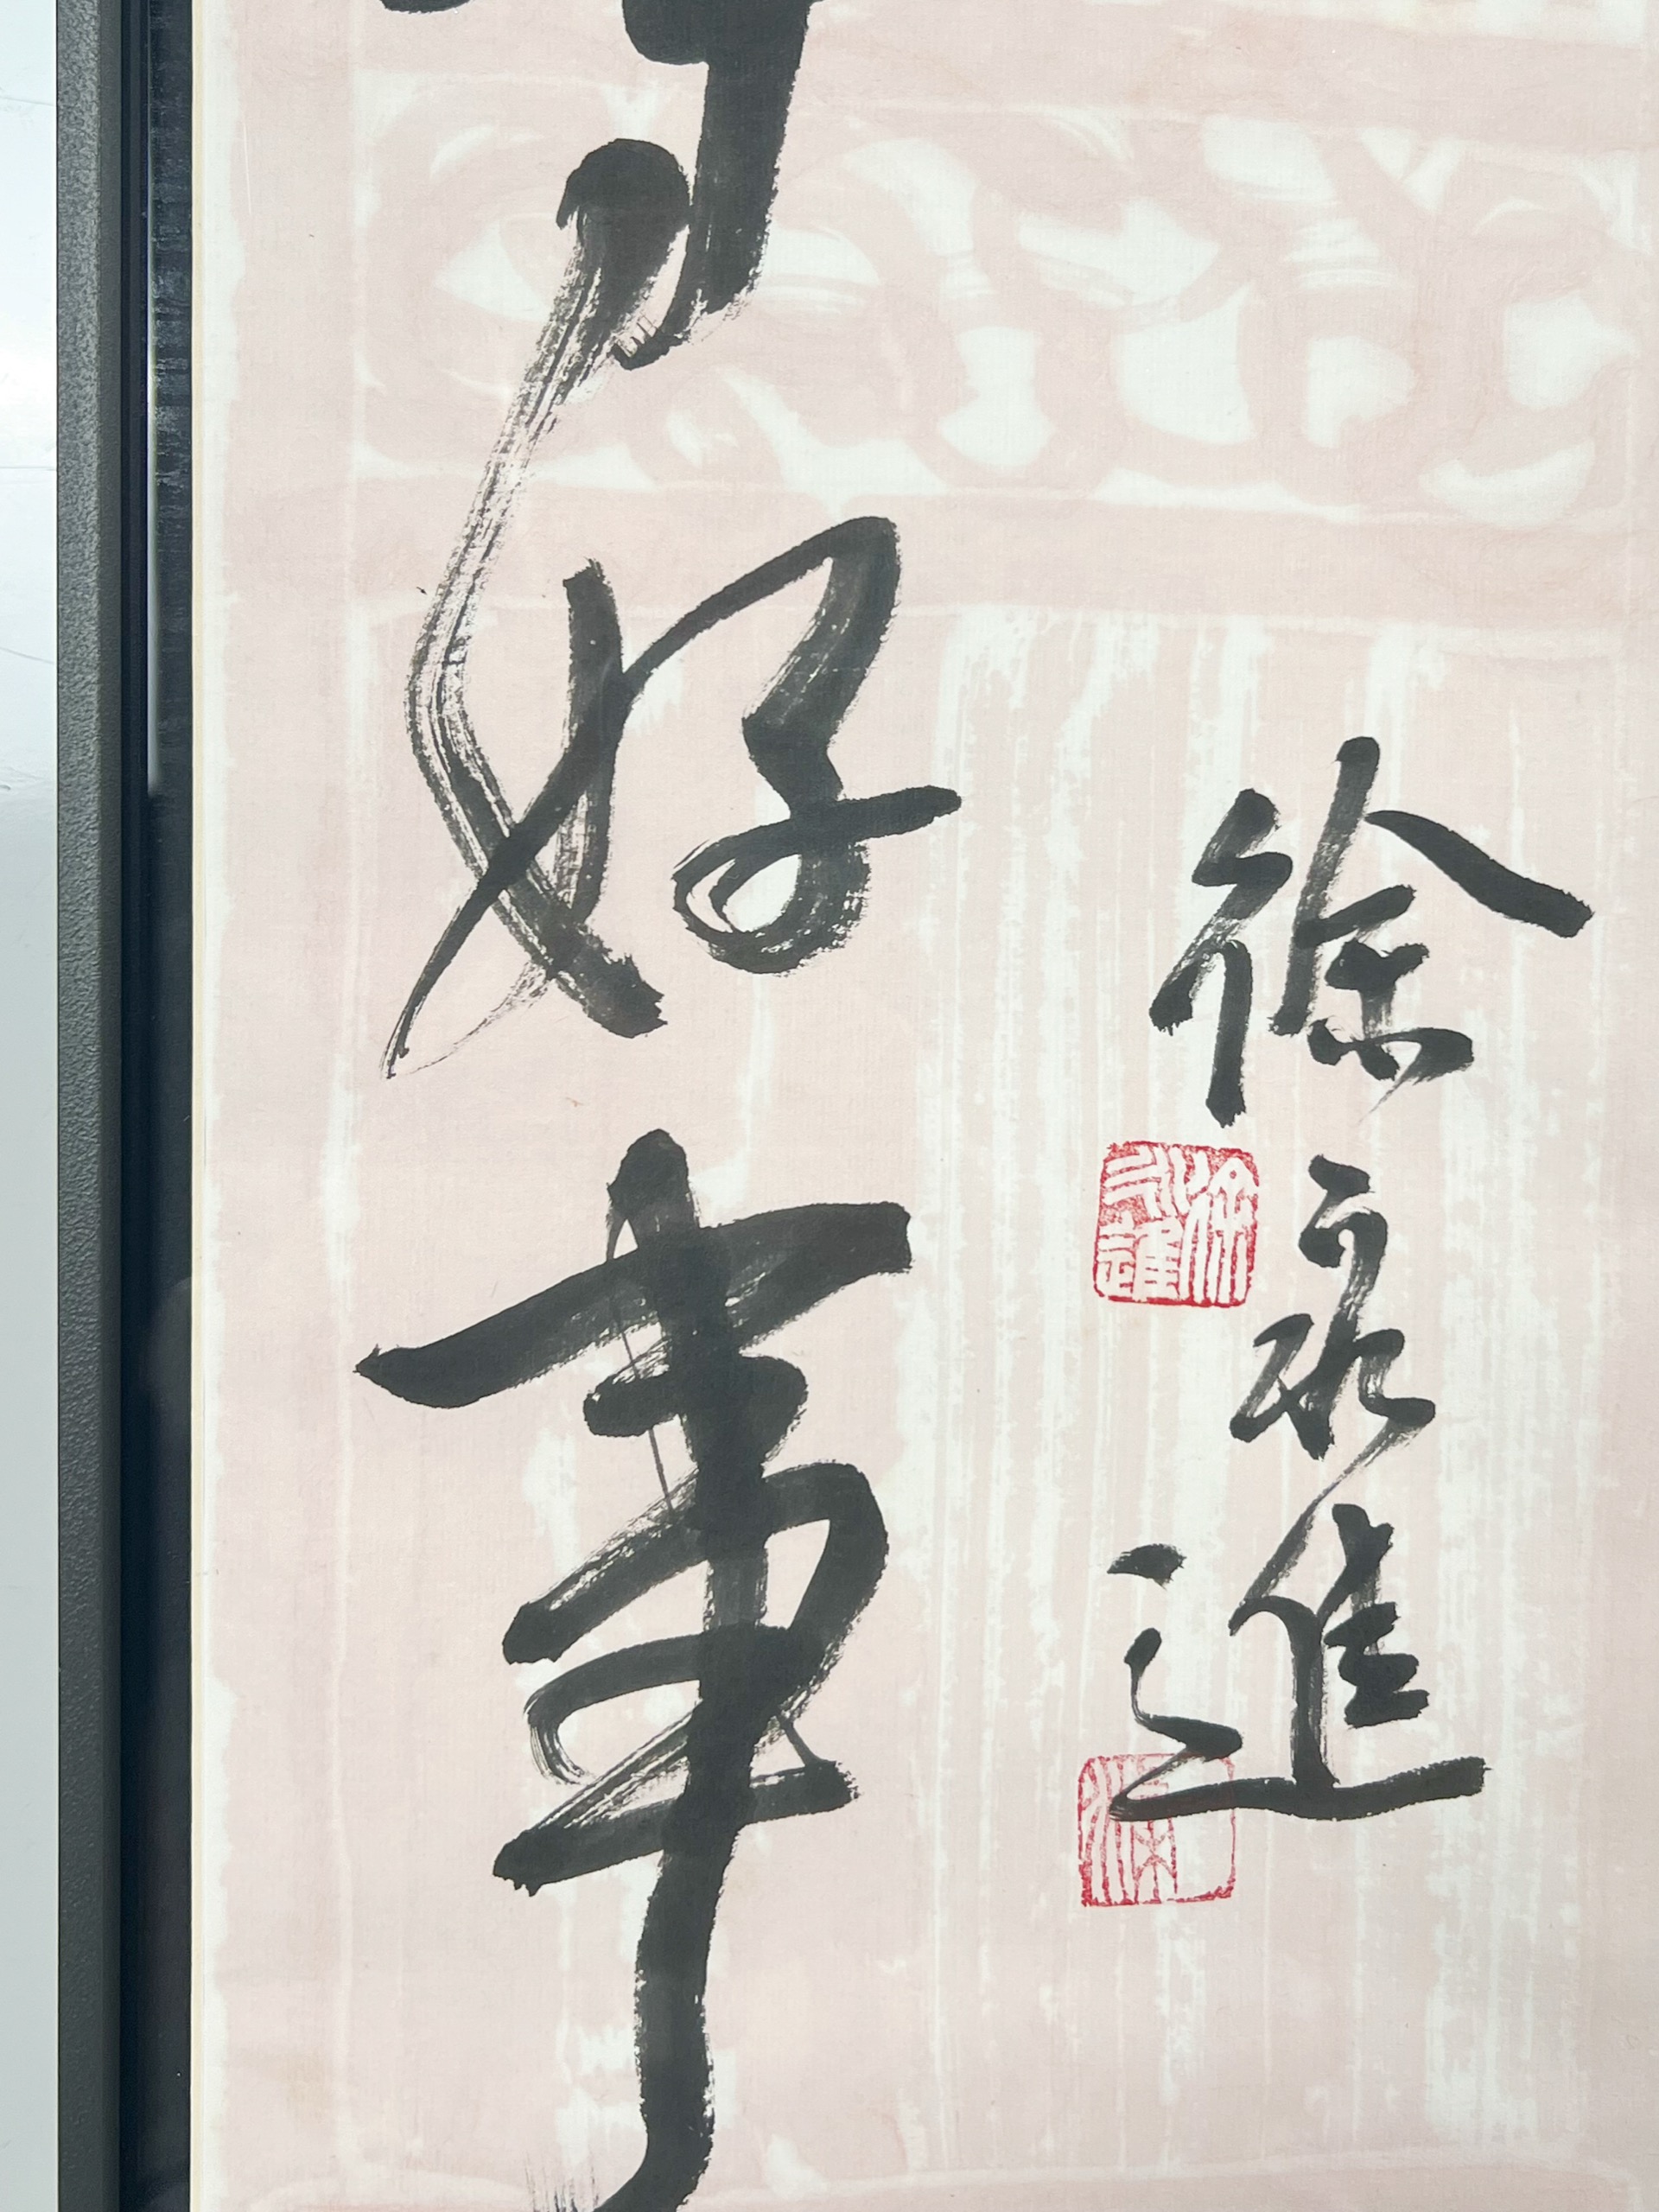 好事
徐永進
徐永進